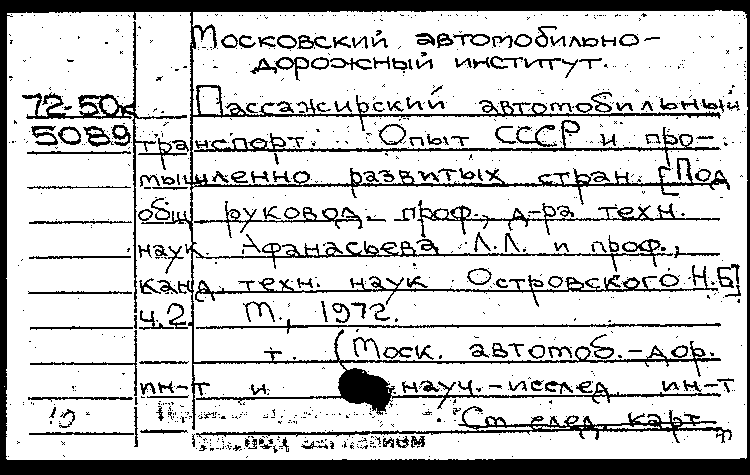 Московский автомобильно-
дорожный институт.
72-50к Пассажирский автомобильный
5089 транспорт. Опыт СССР и про-
мышленно развитых стран. [Под
общ. руковод. проф., д-ра техн.
наук Афанасьева Л.Л. и проф.,
канд. техн. наук Островского Н.Б]
ч.2. М., 1972.
т. (Моск. автомоб.-дор.
ин-т и науч.-исслед. ин-т
См след. карт.